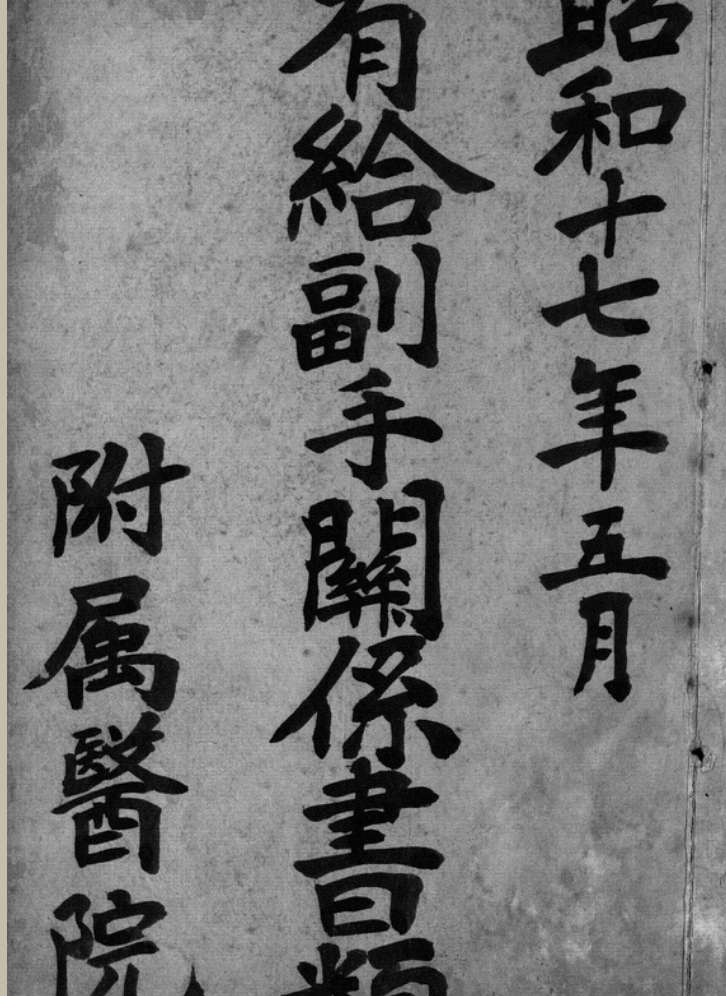 昭和十七年五月
有給副手關係書類
附属醫院